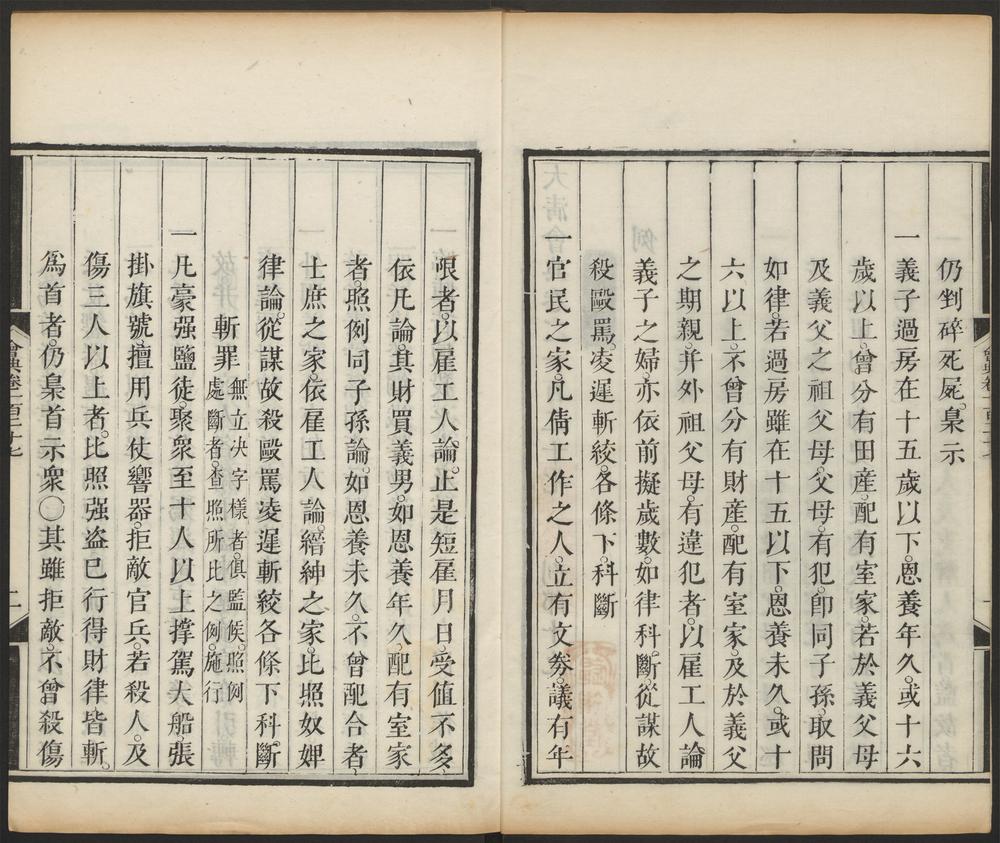 仍剉碎死屍。梟示
一義子過房在十五歲以下。恩養年久。或十六
歲以上。曾分有田產。配有室家。若於義父母
及義父之祖父母。父母。有犯。卽同子孫。取問
如律。若過房雖在十五以下。恩養未久。或十
六以上。不曾分有財產。配有室家。及於義父
之期親。并外祖父母。有違犯者。以雇工人論
義子之婦亦依前擬歲數。如律科斷。從謀故
殺毆罵凌遲斬絞。各條下。科斷
一官民之家。凡倩工作之人。立有文券。議有年
限者。以雇工人論。止是短雇月日。受值不多
依凡論。其財買義男。如恩養年久。配有室家
者。照例同子孫論。如恩養未久。不曾配合者
士庶之家。依雇工人論。縉紳之家。比照奴婢
律論。從謀故殺毆罵凌遲斬絞各條下科斷。
斬罪無立决字樣者。俱監候。照例
處斷者。查照所比之例。施行
一凡豪强鹽徒。聚衆至十人以上。撑駕大船。張
掛旗號。擅用兵仗響器。拒敵官兵。若殺人。及
傷三人以上者。比照强盜已行得財律皆斬。
爲首者。仍梟首示衆〇其雖拒敵。不曾殺傷
會典卷一百二十七
二